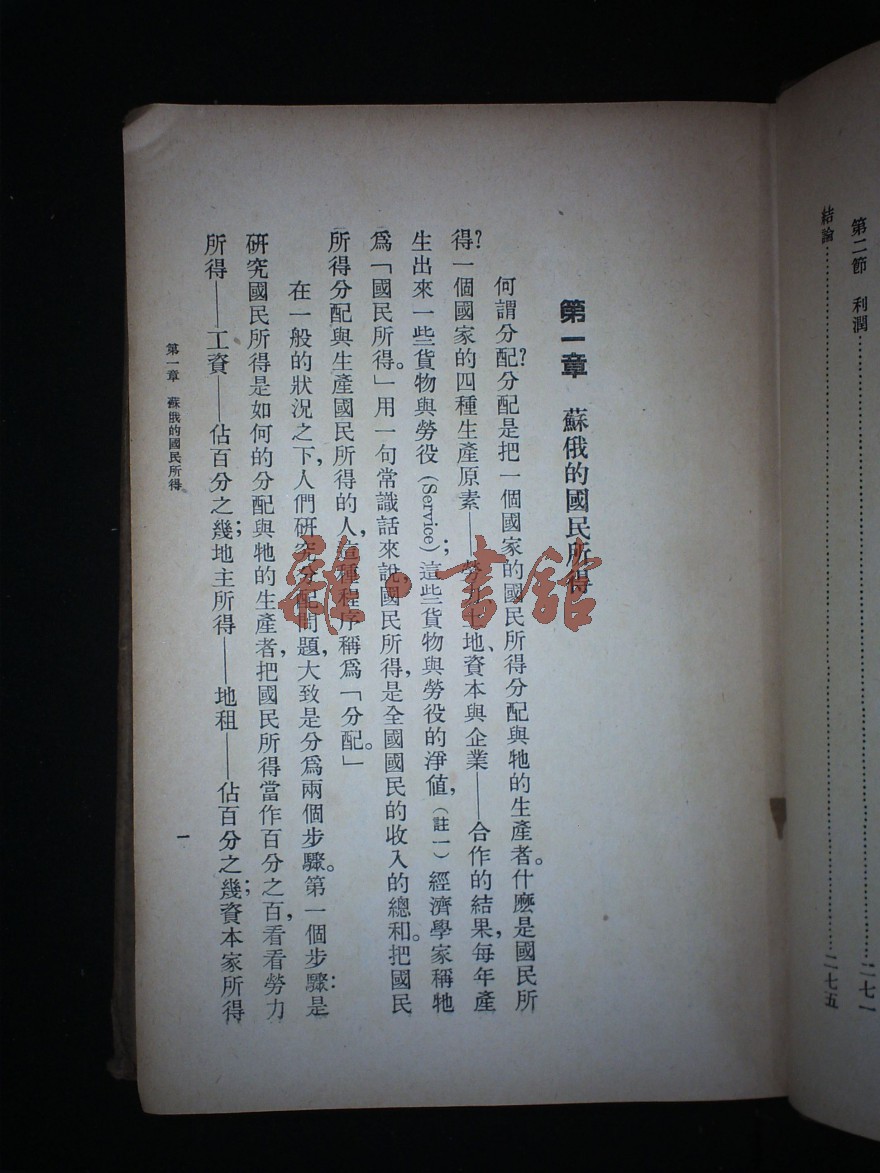 第二節　利潤……二七一
結論……二七五
第一章　蘇俄的國民所得
何謂分配?分配是把一個國家的國民所得分配與牠的生產者。什麼是國民所
得?一個國家的四種生產原素——勞力、土地、資本與企業——合作的結果,每年產
生出來一些貨物與勞役(Service);這些貨物與勞役的淨值,(註一)經濟學家稱牠
為「國民所得。」用一句常識話來說,國民所得,是全國國民的收入的總和。把國民
所得分配與生產國民所得的人,這種程序稱為「分配。」
在一般的狀況之下,人們研究分配問題,大致是分為兩個步驟。第一個步驟:是
研究國民所得是如何的分配與牠的生產者,把國民所得當作百分之百,看看勞力
所得——工資——佔百分之幾;地主所得——地租——佔百分之幾;資本家所得
第一章　蘇俄的國民所得
一
雜·書館